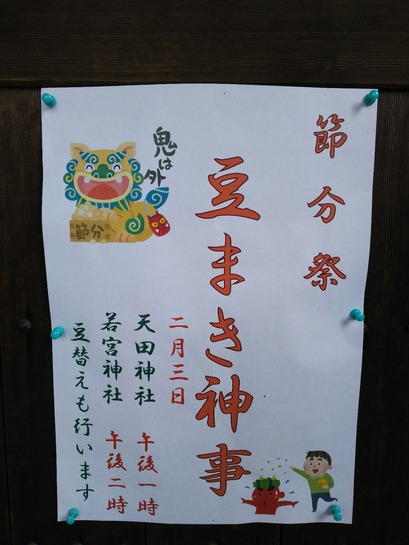 節分祭
豆まき神事
鬼は外
節分
二月三日
天田神社 午後一時
若宮神社 午後二時
豆替えも行います